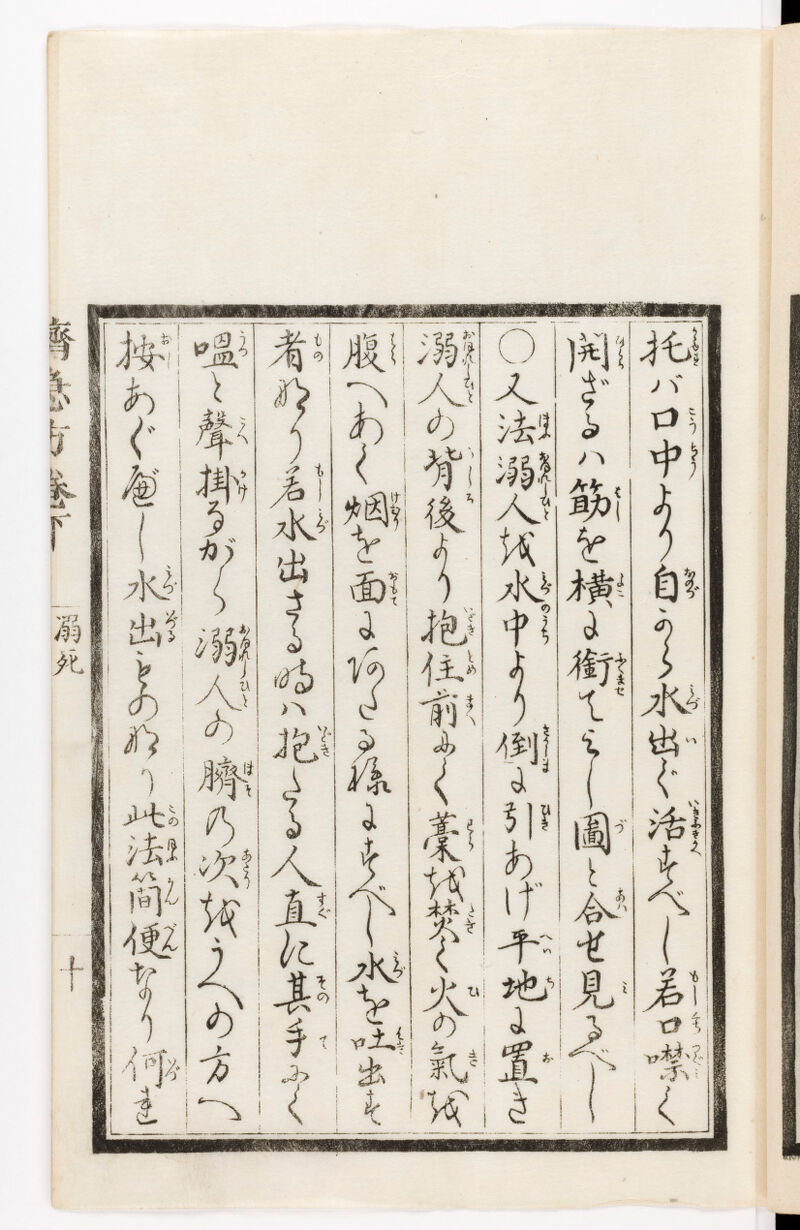 托バ口中より自から水出で活すべし若口噤て
開ざるハ筋を横に銜てよし圖と合せ見るべし
〇又法溺人を水中より倒に引あげ平地に置き
溺人の背後より抱住前にて藁を焚て火の氣を
腹へあて烟を面にあたる様にすべし水を吐出す
者なり若水出ざる時ハ抱たる人直に其手にて
嗢と聲掛ながら溺人の臍の次をうへの方へ
按あぐべし水出ものなり此法簡便なり何れ
濟急方卷下
溺死
十